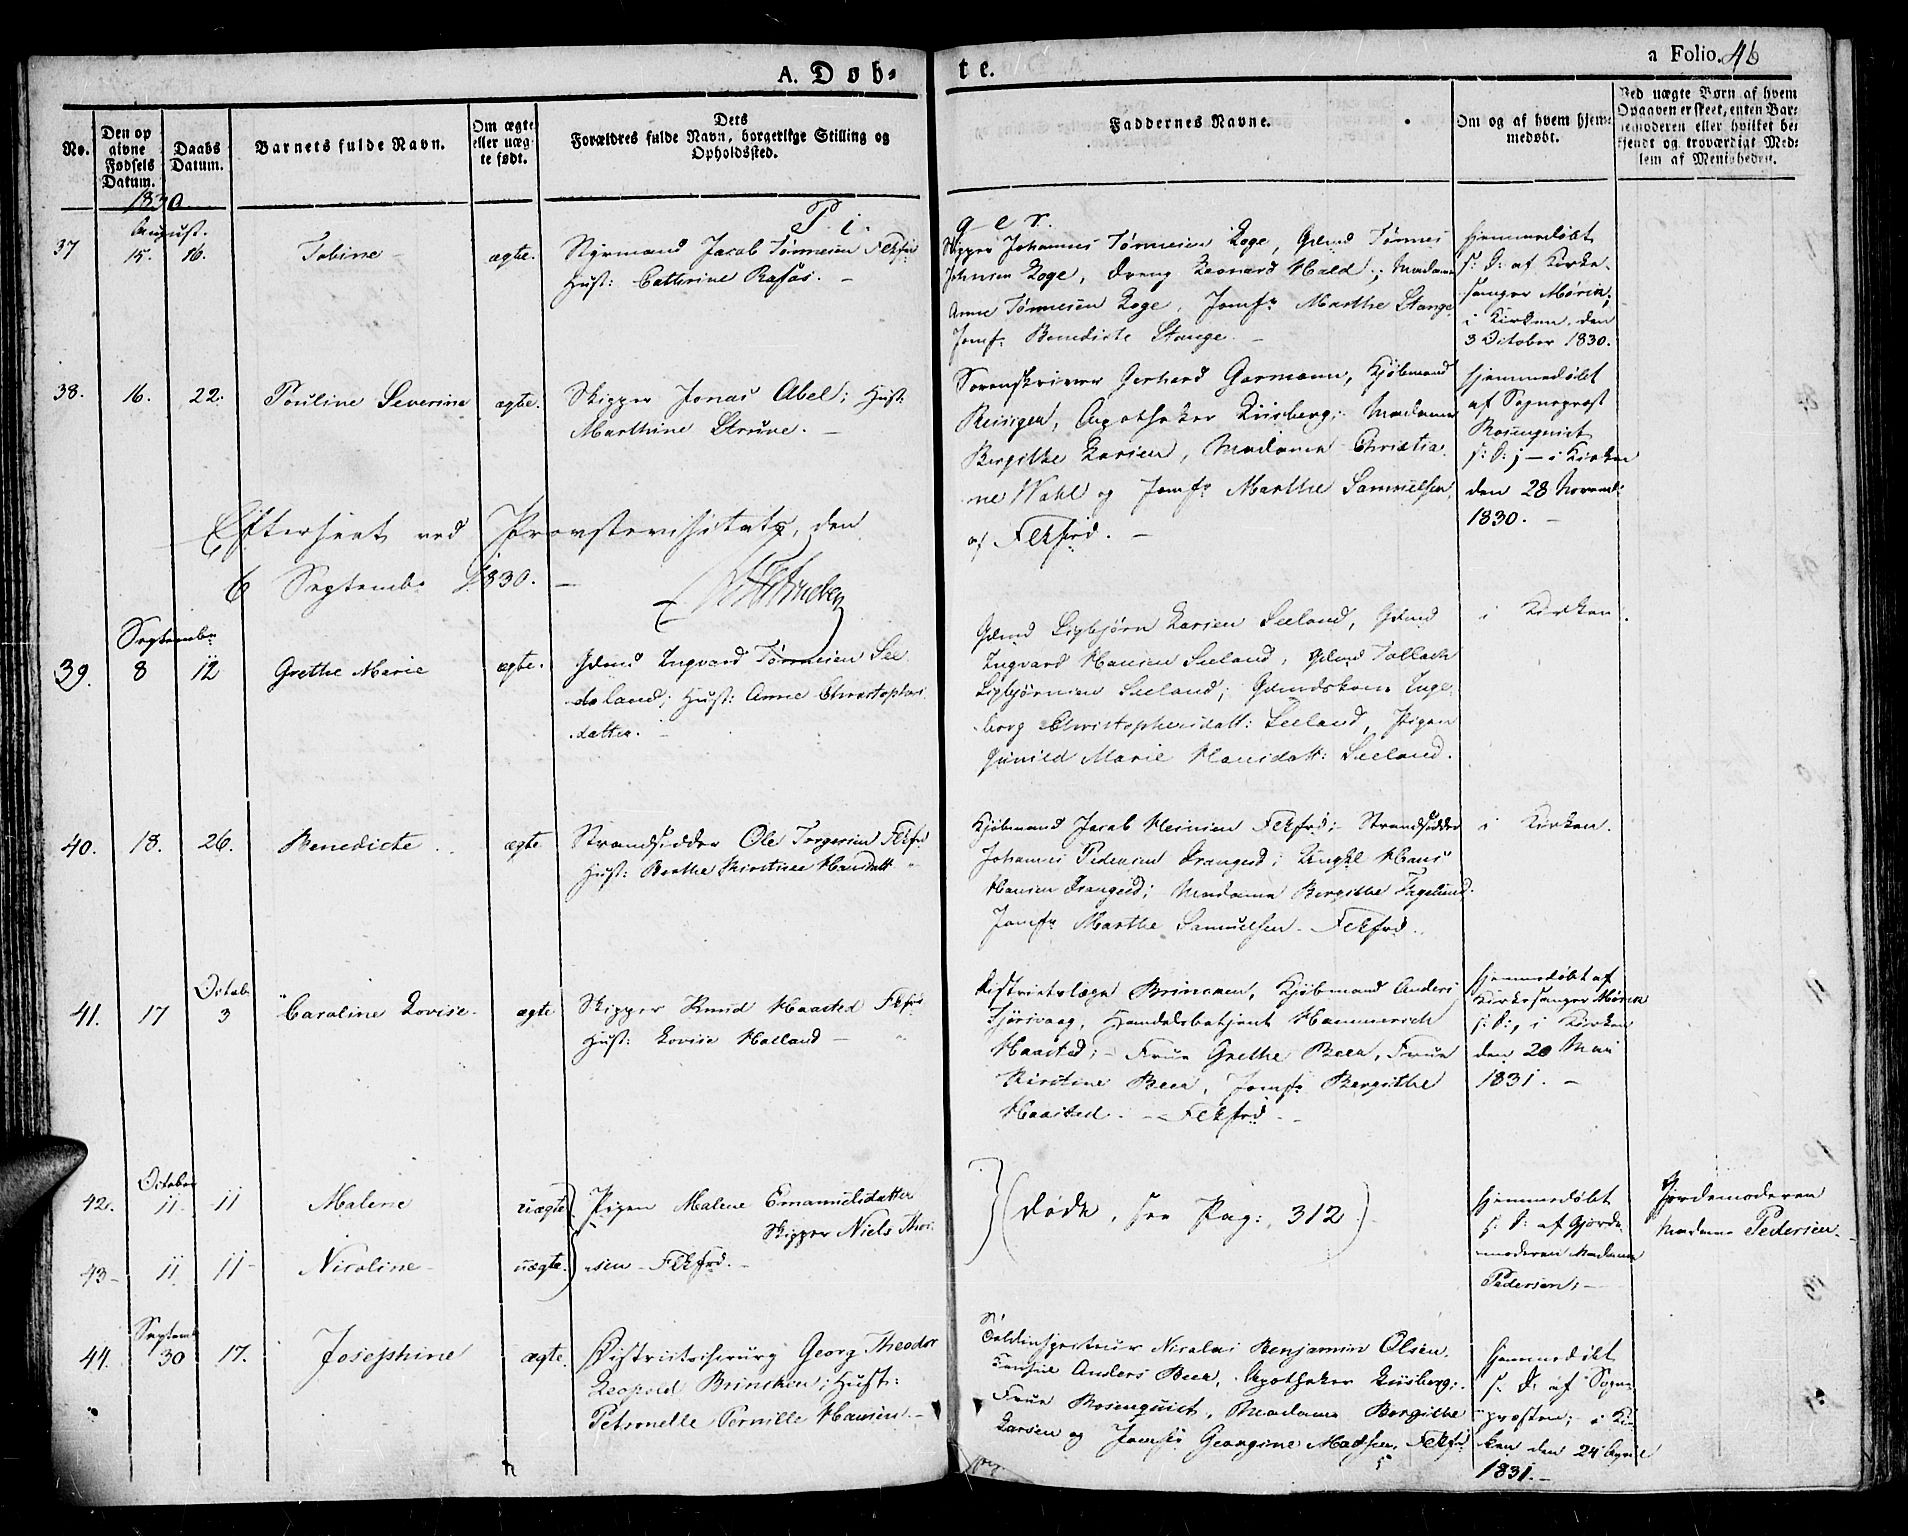 A. Døb-
te.
a Folio. 46
No.
Den op
givne
Fødsels
Datum.
Daabs
Datum.
Barnets fulde Navn.
Om ægte
eller uæg-
te født.
Dets
Forældres fulde Navn, borgerlige Stilling og
Opholdssted.
Faddernes Navne.
Om og af hvem hjem-
medøbt.
Ved uægte Børn af hvem
Opgaven er skeet, enten Bar-
nemoderen eller hvilket be-
kjendt og troværdigt Med-
lem af Menigheden.
1830
Piger.
August.
37 15. 16. Tobine ægte. Styrmand Jacob Tønnesen Flkfrd
Hust: Cathrine Rafos.
Skipper Johannes Tønnesen Loge, Gdmd Tønnes
Johnsen Loge, Dreng Leonard Hald; Madame
Anne Tønnesen Loge, Jomfr Marthe Stange
Jomfr Benedicte Stange.
Hjemmedøbt
s: D: af Kirke-
sanger Mørin;
i Kirken, den
3 October 1830.
38. 16. 22. Pouline Severine ægte. Skipper Jonas Abel; Hust
Marthine Struve.
Sorenskriver Gerhard Garmann, Kjøbmand
Reisigen, Apotheker Liisberg; Madame
Bergithe Larsen, Madame Christia-
ne Wahl og Jomfr Marthe Samuelsen,
af Flkfrd.
Hjemmedøbt
af Sognepræst
Rosenquist
s: D: ; - i Kirken
den 28 Novemb:
1830.
Efterseet ved Provstevisitats, den
6 September 1830.
September
39. 8 12 Grethe Marie ægte. Gdmd Ingvard Tønnesen See-
land; Hust: Anne Christophers-
datter.
Gdmd Sigbjørn Larsen Seeland, Gdmd
Ingvard Hansen Seeland, Gdmd Tollack
Sigbjørnsen Seeland; Gdmdskone Inge-
borg Christophersdatt: Seeland, Pigen
Gunild Marie Hansdatt: Seeland.
i Kirken.
40. 18. 26. Benedicte ægte Strandsidder Ole Torgersen Flkfrd
Hust: Berthe Kirstine Hansdatt
Kjøbmand Jacob Heinsen Flkfrd; Strandsidder
Johannes Pedersen Drangeid; Ungkl Hans
Hansen Drangeid; Madame Bergithe Fagelund
Jomfr Marthe Samuelsen - Flkfrd.
i Kirken.
Octob
41. 17 3 Caroline Lovise ægte Skipper Knud Haasted Flkfrd
Hust: Lovise Holland
Districtslæge Brincken, Kjøbmand Anders
Tjørsvaag, Handelsbetjent Hammerich
Haasted; - Frue Grethe Beer, Frue
Kirstine Beer, Jomfr Bergithe
Haasted. - Flkfrd.
Hjemmedøbt af
Kirkesanger Mørin
s: D:, i Kirken
den 20 Mai
1831.
October
42. 11. 11 Malene uægte Pigen Malene Emanuelsdatter
Skipper Niels Thor-
43 11 11 Nicoline uægte. sen - Flkfrd.
(døde, see Pag: 312.)
Hjemmedøbt
s: D: af Gjorde-
moderen Madame
Pedersen;
Gjordemoderen
Madame Pedersen.
Septemb
44. 30 17. Josephine ægte. Districtschirurg Georg Theodor
Leopold Brincken; Hust:
Petronelle Pernille Hansen.
Toldinspecteur Nicolai Benjamin Olsen,
Consul Anders Beer, Apotheker Liisberg;
Frue Rosenquist, Madame Bergithe
Larsen og Jomfr Georgine Madsen, Flkfrd.
Hjemmedøbt
s: D: af Sogne-
præsten; i Kir-
ken den 24 April
1831.